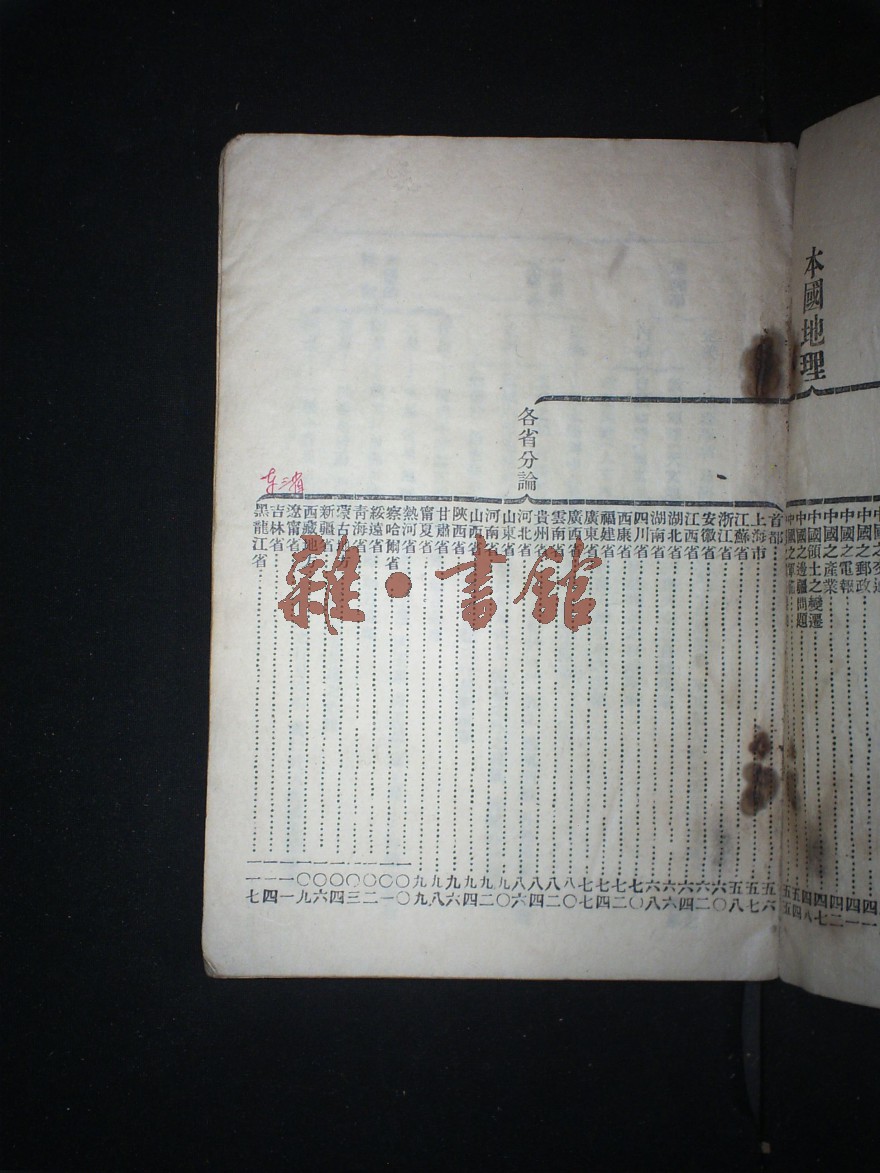 本國地理
中國之郵政
中國之電報
中國之產業
中國領土之變遷
中國之邊疆問題
各省分論
首都 五六
上海市 五七
江蘇省 五八
浙江省 六〇
安徽省 六二
江西省 六四
湖北省 六六
湖南省 六八
四川省 七〇
西康省 七二
福建省 七四
廣東省 七七
廣西省 八〇
雲南省 八二
貴州省 八四
河北省 八六
山東省 九〇
河南省 九二
山西省 九四
陝西省 九六
甘肅省 九八
甯夏省 九九
熱河省 一〇〇
察哈爾省 一〇一
綏遠省 一〇二
青海省 一〇三
蒙古地方 一〇四
新疆省 一〇六
西藏地 一〇九
遼甯省 一一一
吉林省 一一四
黑龍江省 一一七
东三省
雜·書館